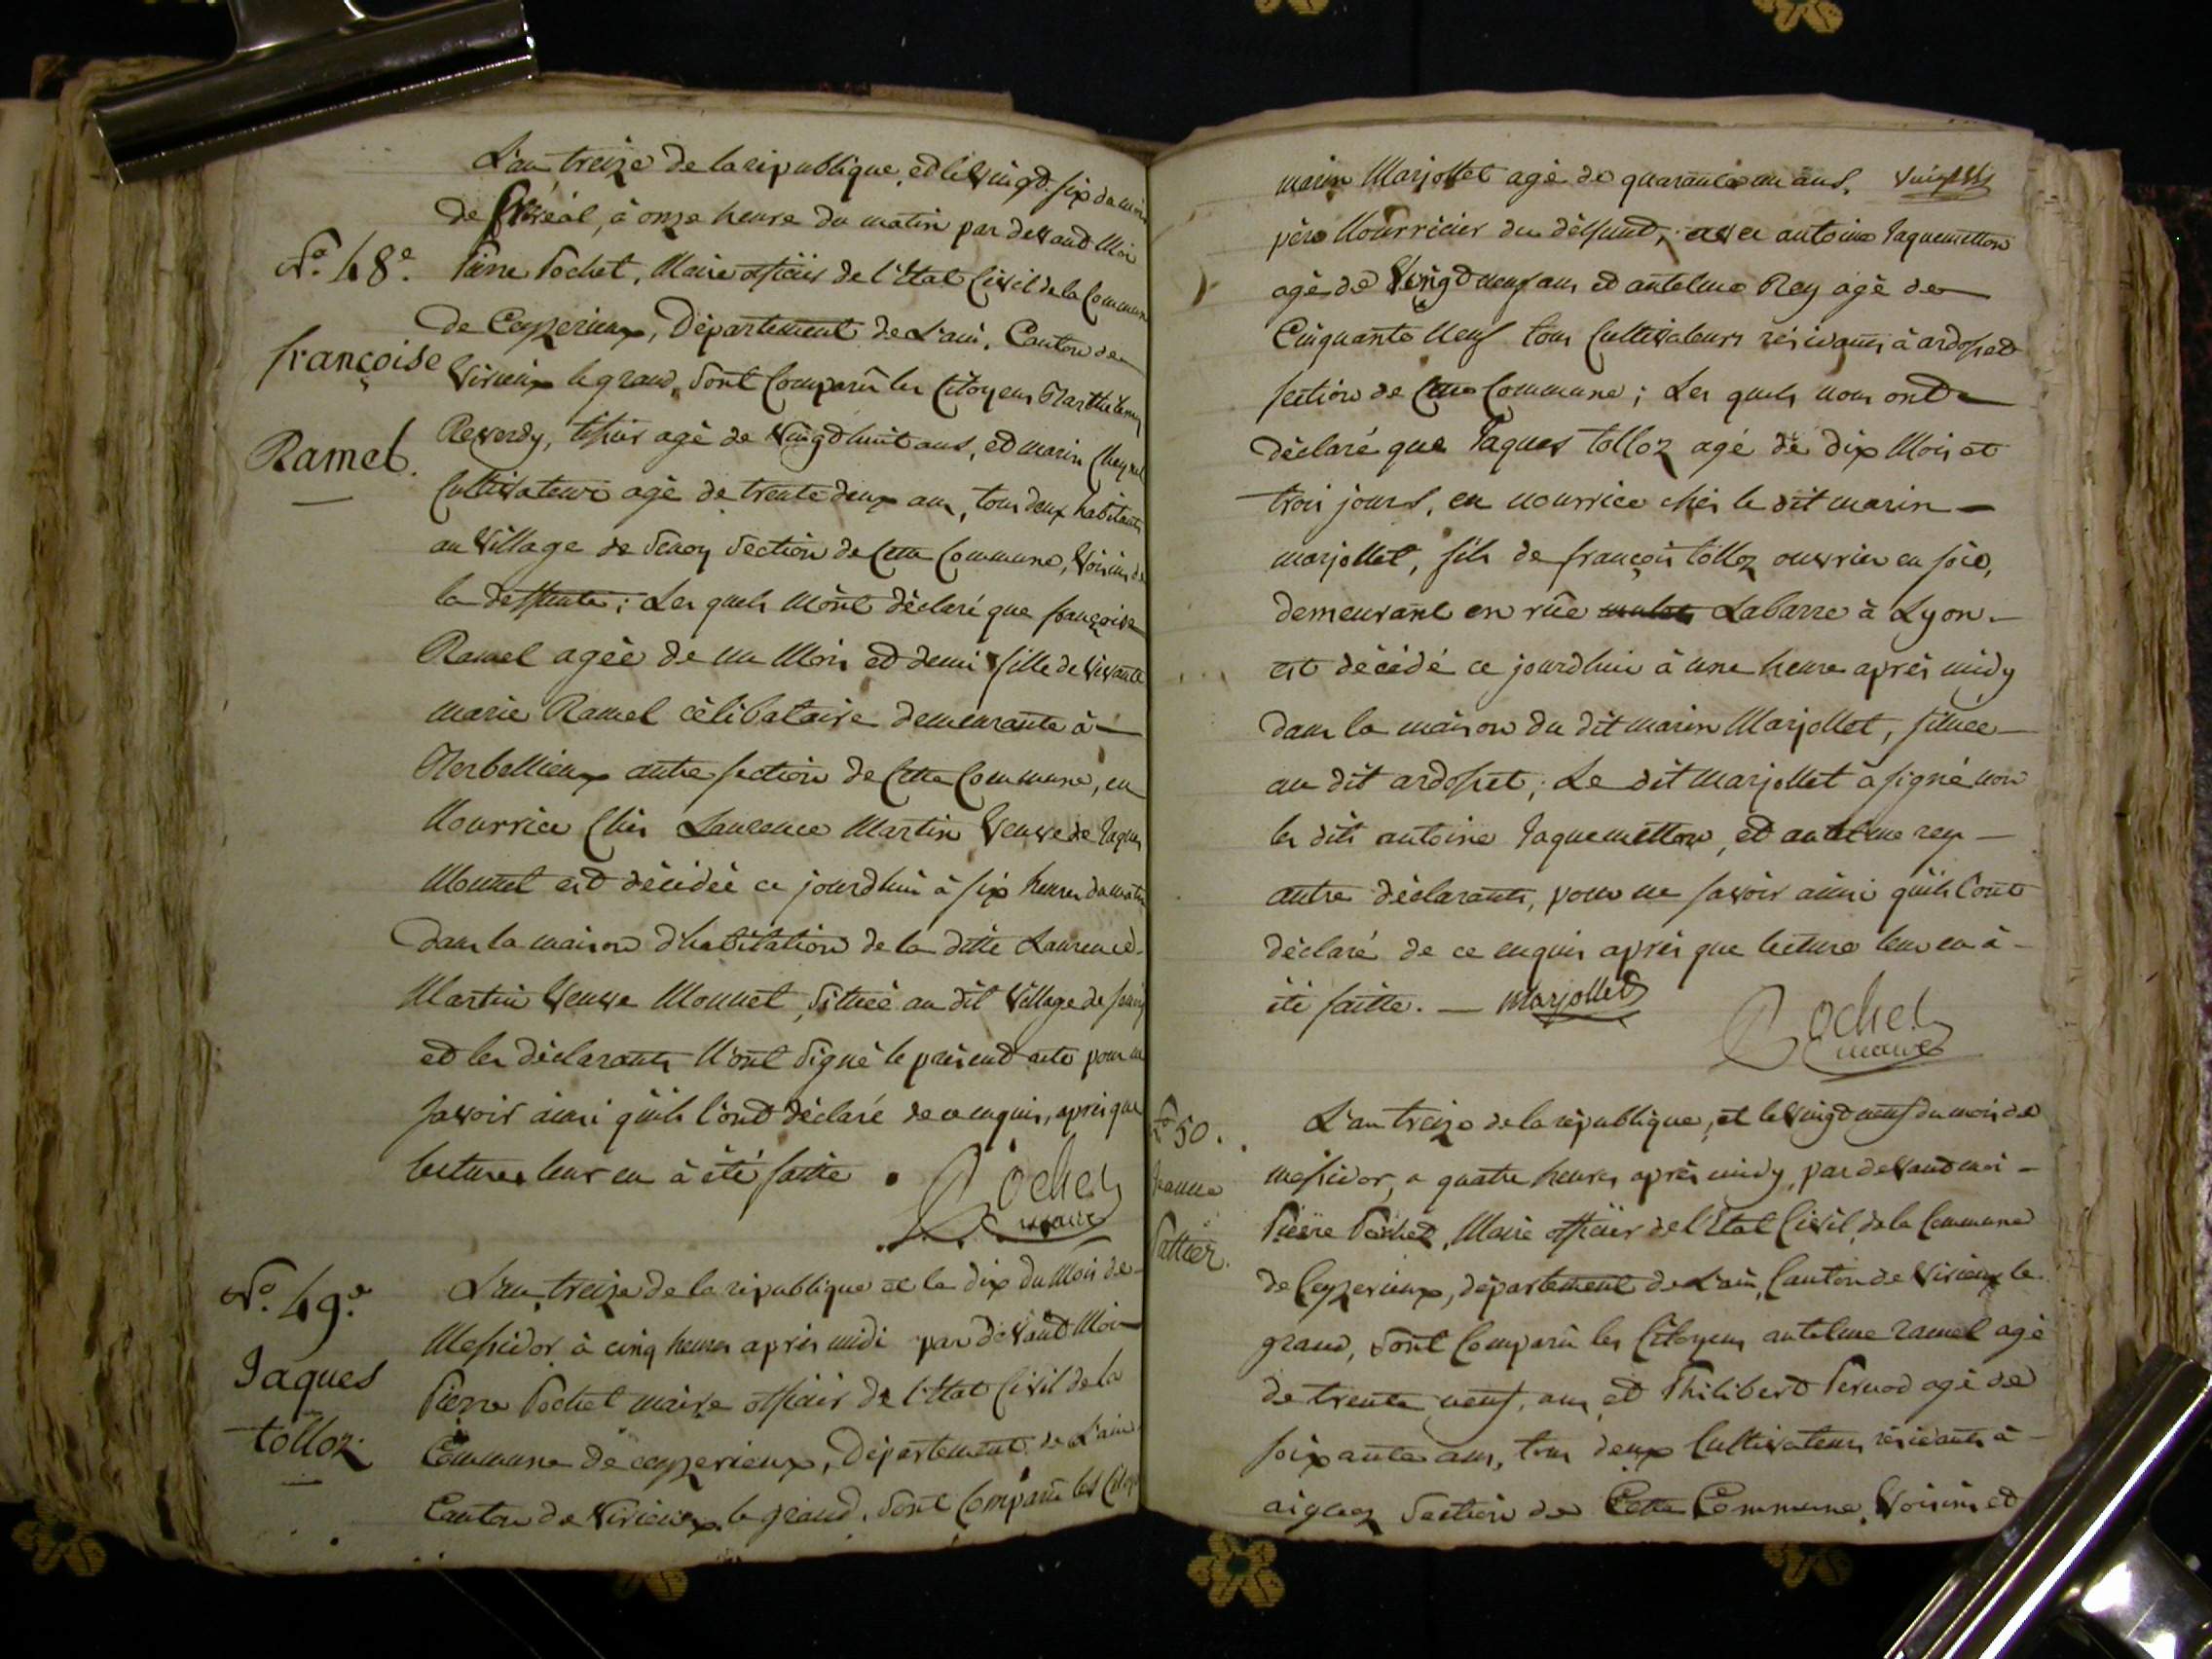 L'an treize de la république, et le Vingt-six du mois
de préréal, à onze heure du matin par devant Moi
N.° 48.e
Pierre Pochet, Maire officier de l'Etat Civil de la Commune
de Ceyzerieux, Département de L'ain, Canton de
françoise
Virieux le grand, Sont Comparû les Citoyens Barthélemy
Ramel.
Reverdy, tissier agé de Vingt huit ans, et marin Cheynel
Cultivateur agé de trente deux ans, tous deux habitants
au Village de Senoy Section de Cette Commune, Voisins de
la deffunte; Les quels m'ont déclaré que françoise
Ramel agée de un Mois et demi fille de vivante
marie Ramel célibataire demeurante à
Berbellieux autre section de Cette Commune, en
Nourrice Chés Laurence Martin Veuve de Jaques
Monnet est décédée ce jourdhui à six heures du matin
Dans la maison d'habitation de la ditte Laurence
Martin Veuve Monnet, Située au dit Village de
et les déclarants N'ont signé le présent acte pour ne
savoir ainsi qu'ils l'ont déclaré de ce enquis, après que
lecture leur en à été faitte.
Pochet
maire
N.° 49.e
L'an treize de la république et le dix du Mois de
Messidor à cinq heures après midi par devant Moi
Jaques
Pierre Pochet maire officier de l'Etat Civil de la
tolloz
Commune de ceyzerieux, Département de L'ain
Canton de Virieux le grand. Sont Comparû les Citoyens
marin Marjollet agé de quarante un ans,
père Nourricier du déffunt, avec antoine Jaquemetton
agé de Vingt neuf ans et antelme Rey agé de
Cinquante Neuf tous Cultivateurs résidants à ardosset
section de Cette Commune; Les quels nous ont
déclaré que Jaques tolloz agé de dix Mois et
trois jours, en nourrice chés le dit marin
marjollet, fils de françois tolloz ouvrier en soie,
demeurant en rüe Labarre à Lyon.
est décédé ce jourdhui à une heure après midy
dans la maison du dit marin Marjollet, située
au dit ardosset; Le dit Marjollet à signé non
les dits antoine Jaquemetton, et antelme rey
autre déclarants, pour ne savoir ainsi qu'ils l'ont
déclaré de ce enquis après que lecture leur en à
été faitte. Marjollet
Pochet
maire
N.° 50.
L'an treize de la république, et le vingt neuf du mois de
messidor, a quatre heures après midy, par devant moi
Jeanne
Pierre Pochet, Maire officier de l'Etat Civil de la Commune
Pattier.
de Ceyzerieux, département de L'ain, Canton de Virieux le
grand, Sont Comparû les Citoyens antelme ramel agé
de trente neuf, ans et Philibert Pernod agé de
soixante ans, tous deux Cultivateurs résidants à
aignoz Section de Cette Commune, Voisins et